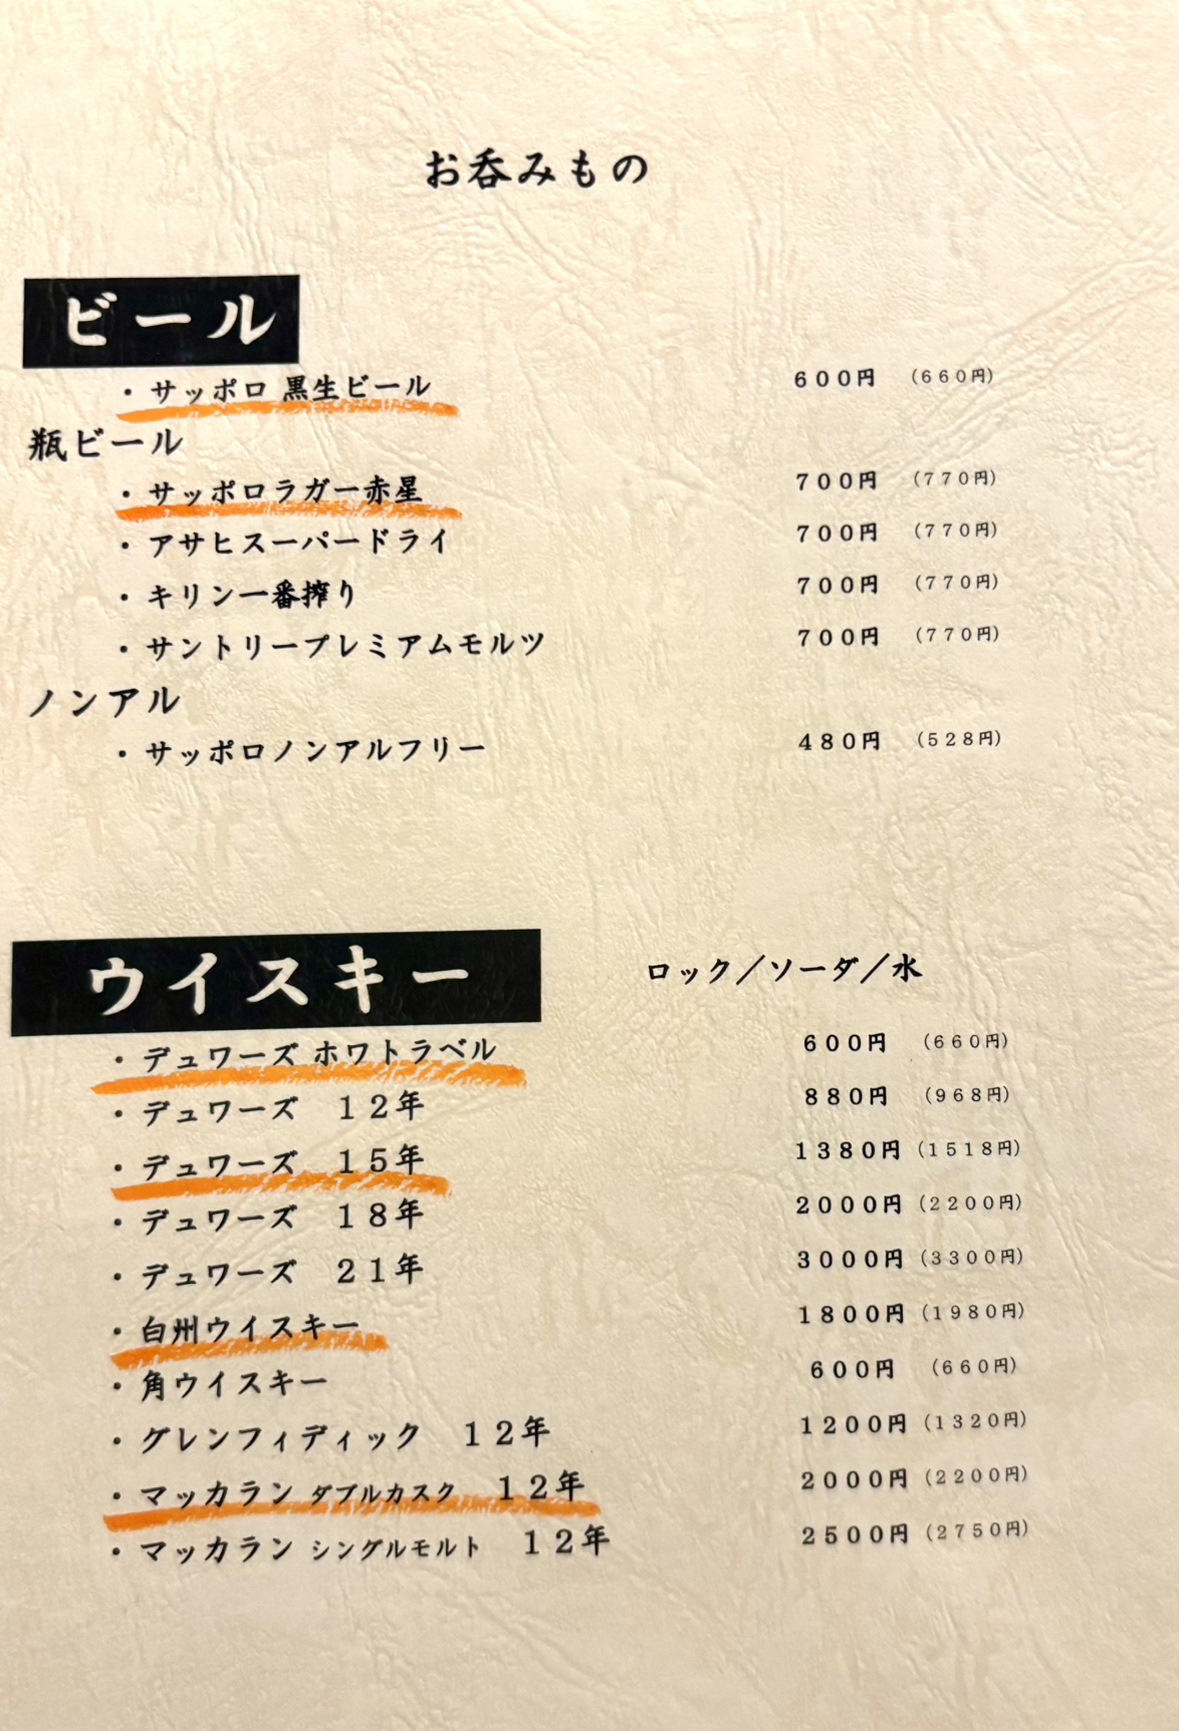 お呑みもの
ビール
・サッポロ 黒生ビール 600円 (660円)
瓶ビール
・サッポロラガー赤星 700円 (770円)
・アサヒスーパードライ 700円 (770円)
・キリン一番搾り 700円 (770円)
・サントリープレミアムモルツ 700円 (770円)
ノンアル
・サッポロノンアルフリー 480円 (528円)
ウイスキー ロック/ソーダ/水
・デュワーズ ホワトラベル 600円 (660円)
・デュワーズ 12年 880円 (968円)
・デュワーズ 15年 1380円 (1518円)
・デュワーズ 18年 2000円 (2200円)
・デュワーズ 21年 3000円 (3300円)
・白州ウイスキー 1800円 (1980円)
・角ウイスキー 600円 (660円)
・グレンフィディック 12年 1200円 (1320円)
・マッカラン ダブルカスク 12年 2000円 (2200円)
・マッカラン シングルモルト 12年 2500円 (2750円)